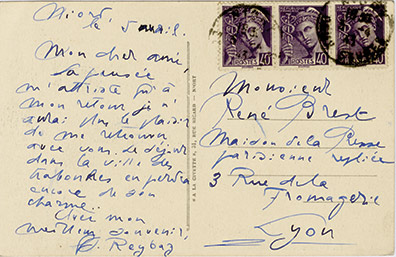 Niort
le 5 avril.
Mon cher ami
La pensée
m'attriste qu'à
mon retour je n'
aurai plus le plaisir
de me retrouver
avec vous. Le séjour
dans la ville des
traboules en perdra
encore de son
charme.
Avec mon
meilleur souvenir,
Monsieur
René Brest
Maison de la Presse
parisienne repliée
3 Rue de la
Fromagerie
Lyon
POSTES 40
POSTES 40
POSTES 40